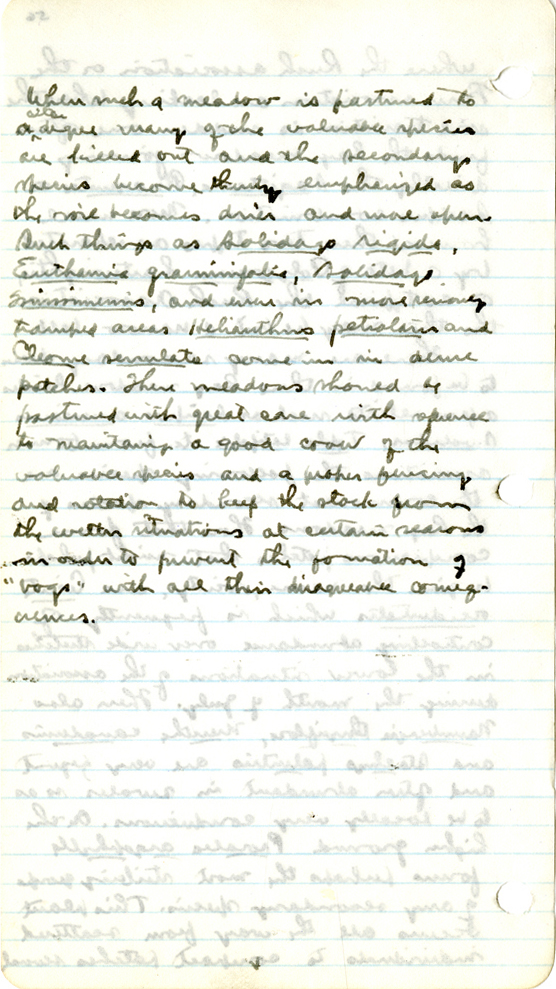 When such a meadow is pastured to
a degree many of the valuable species
are killed out and the secondary
species become thereby emphasized as
the soil becomes drier and more open.
Such things as Solidago rigida,
Euthamia graminifolia, Solidago
missouriensis, and even in more seriously
trampled areas Helianthus petiolaris and
Cleome serrulata come in in dense
patches. These meadows should be
pastured with great care with reference
to maintaining a good cover of the
valuable species and a proper fencing
and rotation to keep the stock from
the wetter situations at certain seasons
in order to prevent the formation of
"bogs" with all their disagreeable conseq-
uences.